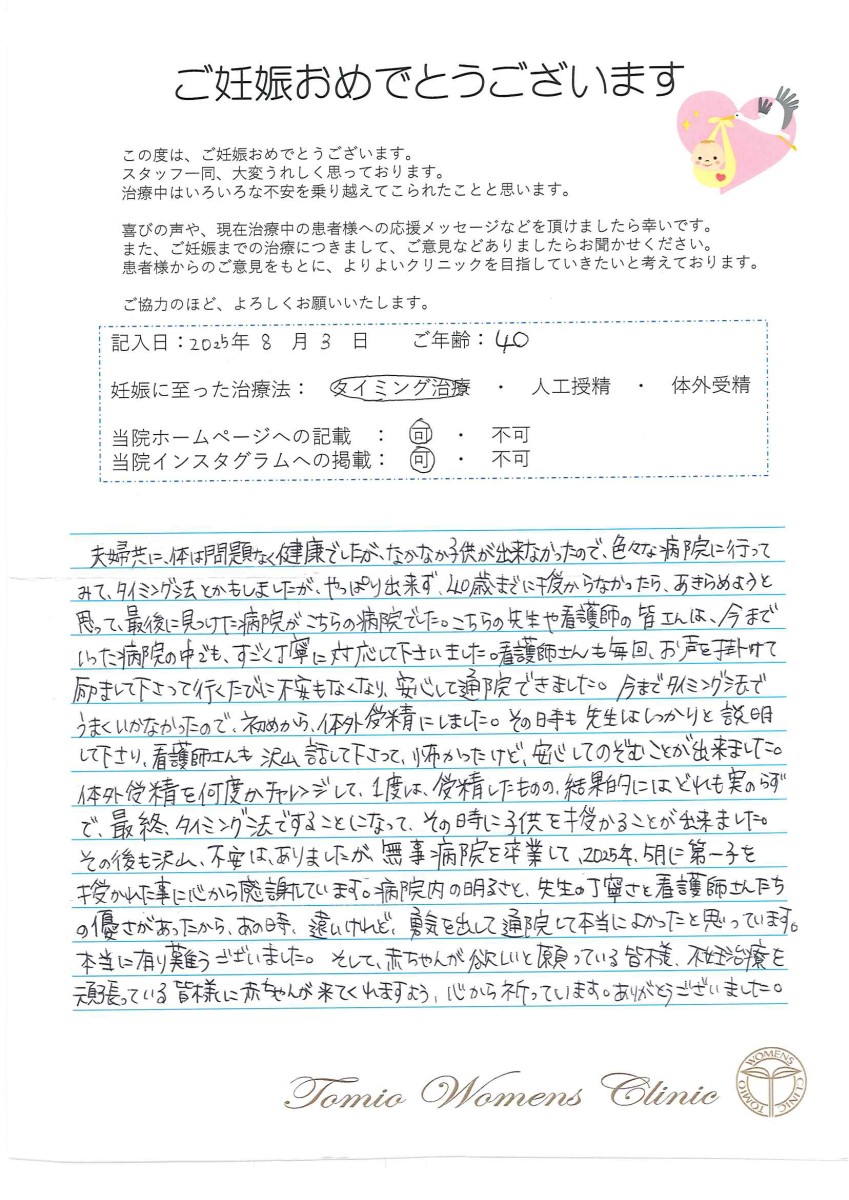 ご妊娠おめでとうございます
この度は、ご妊娠おめでとうございます。
スタッフ一同、大変うれしく思っております。
治療中はいろいろな不安を乗り越えてこられたことと思います。
喜びの声や、現在治療中の患者様への応援メッセージなどを頂けましたら幸いです。
また、ご妊娠までの治療につきまして、ご意見などありましたらお聞かせください。
患者様からのご意見をもとに、よりよいクリニックを目指していきたいと考えております。
ご協力のほど、よろしくお願いいたします。
記入日：2025年 8 月 3 日 ご年齢：40
妊娠に至った治療法： タイミング治療 ・ 人工授精 ・ 体外受精
当院ホームページへの記載 ： 可 ・ 不可
当院インスタグラムへの掲載： 可 ・ 不可
夫婦共に、体は問題なく健康でしたが、なかなか子供が出来なかったので、色々な病院に行って
みて、タイミング法とかもしましたが、やっぱり出来ず、40歳までに授からなかったら、あきらめようと
思って、最後に見つけた病院がこちらの病院でした。こちらの先生や看護師の皆さんは、今まで
いった病院の中でも、すごく丁寧に対応して下さいました。看護師さんも毎回、お声を掛けて
励まして下さって行くたびに不安もなくなり、安心して通院できました。今までタイミング法で
うまくいかなかったので、初めから、体外受精にしました。その時も先生はしっかりと説明
して下さり、看護師さんも沢山話して下さって、怖かったけど、安心してのぞむことが出来ました。
体外受精を何度かチャレンジして、1度は、受精したものの、結果的にはどれも実のらず
で、最終、タイミング法ですることになって、その時に子供を授かることが出来ました。
その後も沢山、不安は、ありましたが、無事病院を卒業して、2025年、5月に第一子を
授かれた事に心から感謝しています。病院内の明るさと、先生の丁寧さと看護師さんたち
の優さがあったから、あの時、遠いけれど、勇気を出して通院して本当によかったと思っています。
本当に有り難うございました。そして、赤ちゃんが欲しいと願っている皆様、不妊治療を
頑張っている皆様に赤ちゃんが来てくれますよう、心から祈っています。ありがとうございました。
Tomio Womens Clinic
TOMIO WOMENS CLINIC